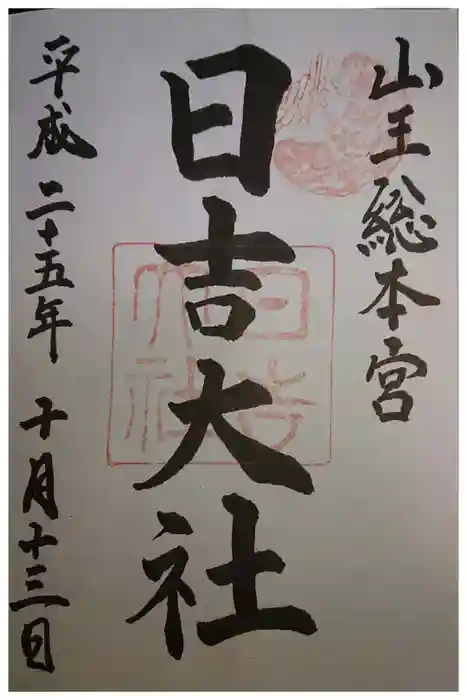 山王総本宮
日吉大社
平成二十五年 十月十三日
日吉大社